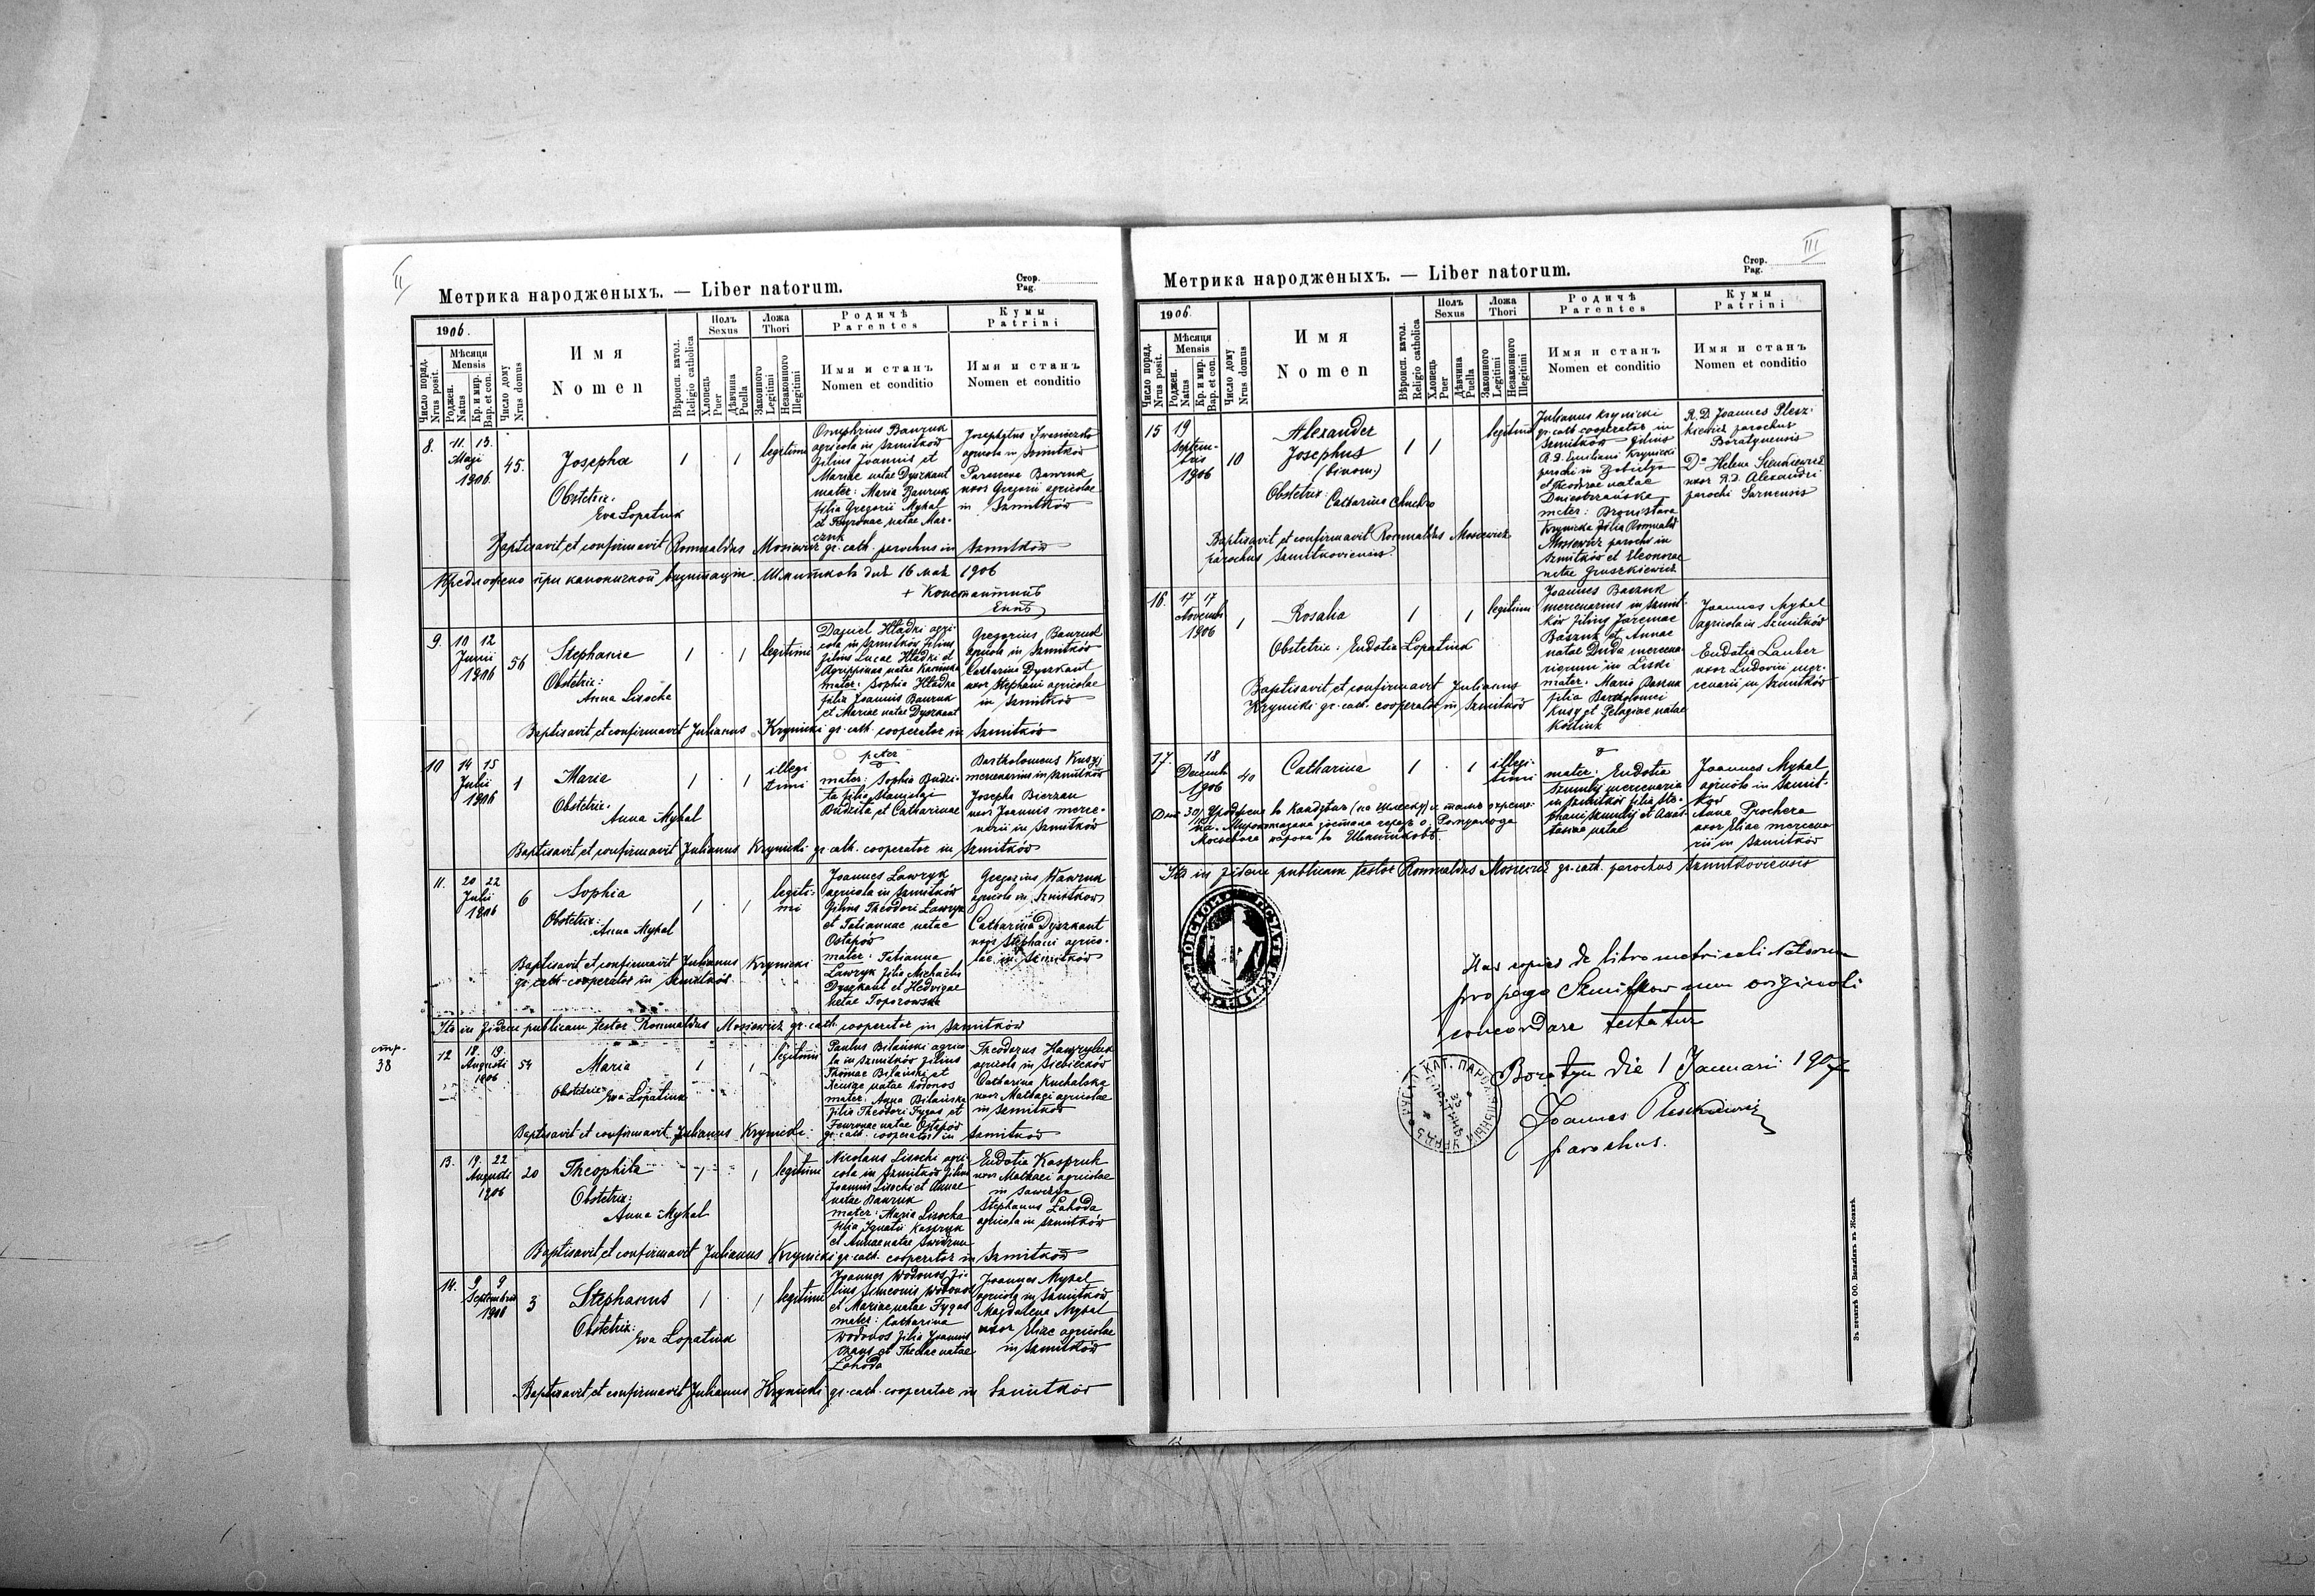 II
Метрика народженыхъ. — Liber natorum.
Стор.
Pag.
1906.
Число поряд.
Nrus posit.
Мѣсяця
Mensis
Роджен.
Natus
Кр. и мир.
Bap. et con.
Число дому
Nrus domus
Имя
Nomen
Вѣроисп. катол.
Religio catholica
Полъ
Sexus
Хлопець
Puer
Дѣвчина
Puella
Ложа
Thori
Законного
Legitimi
Незаконного
Illegitimi
Родичѣ
Parentes
Имя и станъ
Nomen et conditio
Кумы
Patrini
Имя и станъ
Nomen et conditio
8. 11. 13.
Maji
1906.
45.
Josepha
Obstetrix:
Eva Lopatiuk
1 1
legitimi
agricola in Szmitków
filius Joannis et
Mariae natae Dyszkant
mater: Maria Bawruk
filia Gregorii Mykal
et natae Mar-
czuk
agricola in Szmitków
Parasceva Bawruk
uxor Gregorii agricolae
in Szmitków
Baptisavit et confirmavit Romualdus Mosiewicz gr. cath. parochus in Szmitków
Предложено при каноничной визитаціи Шмитковъ дня 16 мая 1906
+ Константинъ
Еппъ
9. 10 12
Junii
1906
56
Stephania
Obstetrix:
Anna Lisocka
1 1
legitimi
Daniel Hładki agri-
cola in Szmitków filius
filius Lucae Hładki et
Agrippinae natae
mater: Sophia Hładka
filia Joannis Bawruk
et Mariae natae Dyszkant
Gregorius Bawruk
agricola in Szmitków
Catharina Dyszkant
uxor Stephani agricolae
in Szmitków
Baptisavit et confirmavit Julianus Krynicki gr. cath. cooperator in Szmitków
10 14 15
Julii
1906
1
Maria
Obstetrix:
Anna Mykal
1 1
illegi
timi
pater
mater: Sophia Budzi-
ta filia Stanislai
Budzita et Catharinae
Bartholomeus Kusyj
mercenarius in Szmitków
Josepha Bierzan
uxor Joannis merce-
narii in Szmitków
Baptisavit et confirmavit Julianus Krynicki gr. cath. cooperator in Szmitków
11. 20 22
Julii
1906
6
Sophia
Obstetrix:
Anna Mykal
1 1
legiti-
mi
Joannes Ławryk
agricola in Szmitków
filius Theodori Ławryk
et Tatiannae natae
Ostapów
mater: Tatianna
Ławryk filia Michaelis
Dyszkant et Hedvigae
natae Toporowska
Gregorius Hawruk
agricola in Szmitków
Catharina Dyszkant
uxor Stephani agrico-
lae in Szmitków
Baptisavit et confirmavit Julianus Krynicki
gr. cath. cooperator in Szmitków
Ita in fidem publicam testor Romualdus Mosiewicz gr. cath. cooperator in Szmitków
стр.
38
12 18. 19.
Augusti
1906
54
Maria
Obstetrix: Eva Lopatiuk
1 1
legitimi
Paulus Bilański agrico-
la in Szmitków filius
Thomae Bilański et
Xeniae natae Wodonos
mater: Anna Bilańska
filia Theodori Fygas et
Fevronae natae Ostapów
Theodorus Hawryluk
agricola in Siebieczów
Catharina Kuchalska
uxor Matthaei agricolae
in Szmitków
Baptisavit et confirmavit Julianus Krynicki gr. cath. cooperator in Szmitków
13. 19. 22
Augusti
1906
20
Theophila
Obstetrix:
Anna Mykal
1 1
legitimi
Nicolaus Lisocki agri-
cola in Szmitków filius
Joannis Lisocki et Annae
natae Bawruk
mater: Maria Lisocka
filia Ignatii Kaspruk
et Annae natae
Eudotia Kaspruk
uxor Matthaei agricolae
in Sawczyn
Stephanus Łahoda
agricola in Szmitków
Baptisavit et confirmavit Julianus Krynicki gr. cath. cooperator in Szmitków
14. 9 9
Septembris
1906
3
Stephanus
Obstetrix:
Eva Lopatiuk
1 1
legitimi
Joannes Wodonos fi-
lius Simeonis Wodonos
et Mariae natae Fygas
mater: Catharina
Wodonos filia Joannis
et Theclae natae
Łahoda
Joannes Mykal
agricola in Szmitków
Magdalena Mykal
uxor Eliae agricolae
in Szmitków
Baptisavit et confirmavit Julianus Krynicki gr. cath. cooperator in Szmitków
III
Метрика народженыхъ. — Liber natorum.
Стор.
Pag.
1906.
Число поряд.
Nrus posit.
Мѣсяця
Mensis
Роджен.
Natus
Кр. и мир.
Bap. et con.
Число дому
Nrus domus
Имя
Nomen
Вѣроисп. катол.
Religio catholica
Полъ
Sexus
Хлопець
Puer
Дѣвчина
Puella
Ложа
Thori
Законного
Legitimi
Незаконного
Illegitimi
Родичѣ
Parentes
Имя и станъ
Nomen et conditio
Кумы
Patrini
Имя и станъ
Nomen et conditio
15 19
Septem-
bris
1906
10
Alexander
Josephus
(binom.)
Obstetrix: Catharina
1 1
legitimi
Julianus Krynicki
gr. cath. cooperator in
Szmitków filius
R. D. Emiliani Krynicki
parochi in
et Theodorae natae
Dniestrzańska
mater: Bronisława
Krynicka filia Romualdi
Mosiewicz parochi in
Szmitków et Eleonorae
natae Gruszkiewicz
R. D. Joannes Plesz-
kiewicz parochus
Boratynensis
Dna Helena
uxor R. D. Alexandri
parochi Sarnensis
Baptisavit et confirmavit Romualdus Mosiewicz
parochus Szmitkoviensis
16. 17 17
Novemb
1906
1
Rosalia
Obstetrix: Eudotia Lopatiuk
1 1
legitimi
Joannes Baszuk
mercenarius in Szmit-
ków filius Jaremae
Baszuk et Annae
natae Duda mercena-
riorum in Liski
mater: Maria Baszuk
filia Bartholomei
Kusy et Pelagiae natae
Kostiuk
Joannes Mykal
agricola in Szmitków
Eudotia Lauber
uxor Ludovici mer-
cenarii in Szmitków
Baptisavit et confirmavit Julianus
Krynicki gr. cath. cooperator in Szmitków
17. 18
Decemb
1906
40
Catharina
1 1
illegi-
timi
mater: Eudotia
Szumlij mercenaria
in Szmitków filia Ste-
phani Szumlij et Anas-
tasiae natae
Joannes Mykal
agricola in Szmit-
ków
Anna Prochera
uxor Eliae mercena-
rii in Szmitków
Ita in fidem publicam testor Romualdus Mosiewicz gr. cath. parochus Szmitkoviensis
Has copias de libro metricali Natorum
pro pago Szmitkow cum originali
concordare testatur
Boratyn die 1 Januarii 1907
Joannes Pleszkiewicz
parochus.
Зъ печатнѣ ОО. Василіянъ въ Жовквѣ.